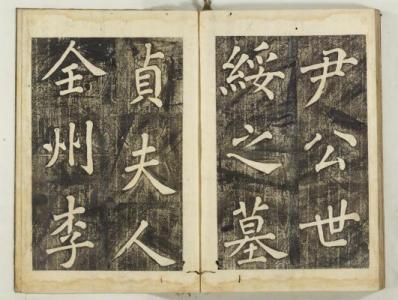 尹公世
綏之墓
貞夫人
全州李